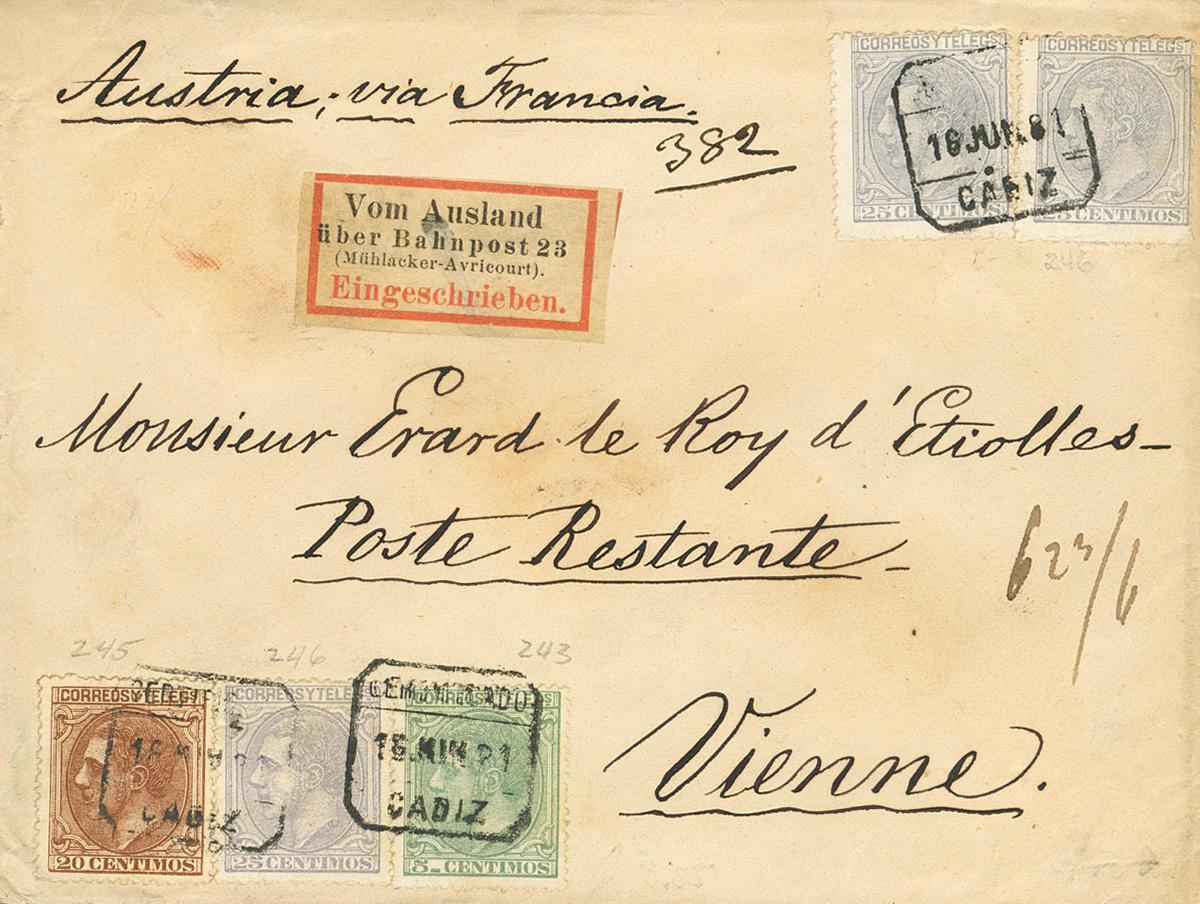 Austria, via Francia.
382
CORREOS Y TELEGS CORREOS Y TELEGS
16 JUN. 81
CADIZ
25 CENTIMOS 25 CENTIMOS
246
Vom Ausland
über Bahnpost 23
(Mühlacker-Avricourt).
Eingeschrieben.
Monsieur Erard le Roy d'Etiolles-
Poste Restante-
623/6
Vienne.
245 246 243
CORREOS Y TELEGS CORREOS Y TELEGS CORREOS Y TELEGS
CERTIFICADO
16 JUN 81
CADIZ CADIZ
20 CENTIMOS 25 CENTIMOS 5 CENTIMOS